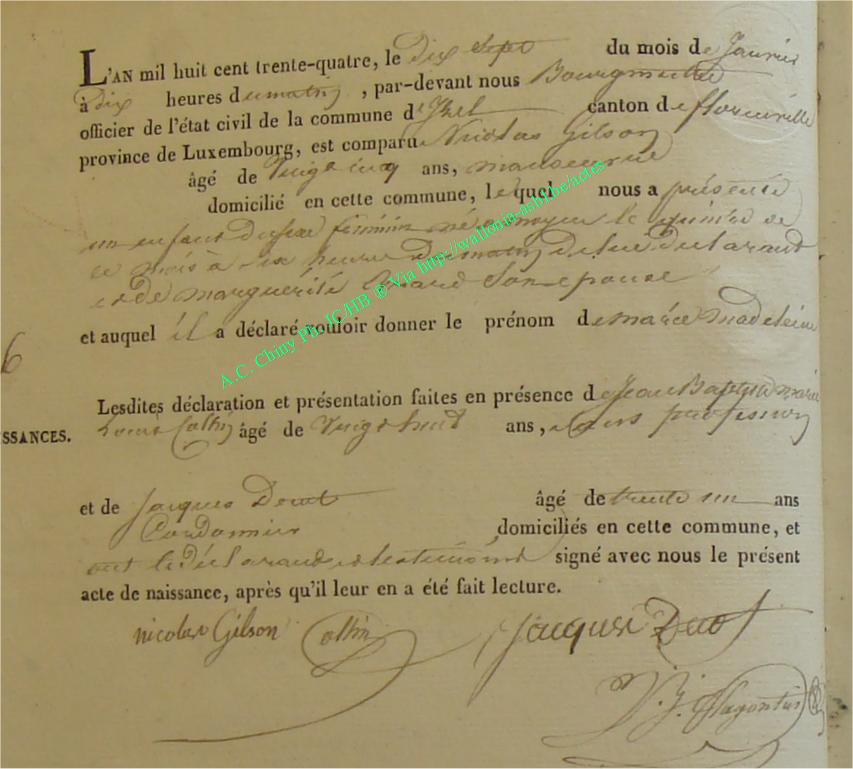 L'AN mil huit cent trente-quatre, le dix sept du mois de Janvier
à dix heures du matin, par-devant nous Bourgmestre
officier de l'état civil de la commune d'Izel canton de florenville
province de Luxembourg, est comparu Nicolas Gilson
âgé de vingt cinq ans, manoeuvre
domicilié en cette commune, lequel nous a présenté
un enfant du sexe féminin né le quinze de
ce mois à six heures du matin de lui déclarant
et de marguerite son epouse
et auquel il a déclaré vouloir donner le prénom de marie madeleine
6
Lesdites déclaration et présentation faites en présence de Jean Baptiste marie
SSANCES.
Louis Collin âgé de vingt huit ans, sans profession
et de Jacques âgé de trente un ans
Cordonnier domiciliés en cette commune, et
ont le déclarant et les témoins signé avec nous le présent
acte de naissance, après qu'il leur en a été fait lecture.
nicolas Gilson Collin Jacques
A.C. Chiny Ph. JC.HB ® Via http://wallonia-asbl.be/actes